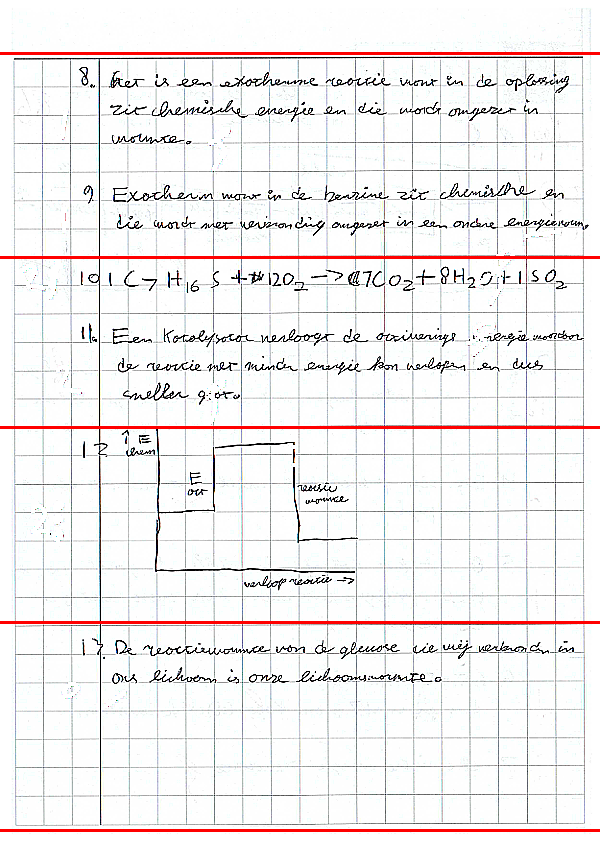 8. Het is een exotherme reactie want in de oplossing
zit chemische energie en die wordt omgezet in
warmte.
9 Exotherm want in de benzine zit chemische en
die wordt met verbranding omgezet in een andere energievorm.
10 1 C7 H16 S + 12O2 —> 7CO2 + 8H2O + 1 SO2
11. Een Katalysator verlaagt de activerings energie waardoor
de reactie met minder energie kan verlopen en dus
sneller gaat.
12 ↑ E
chem
E
act
reactie
warmte
verloop reactie —>
13. De reactiewarmte van de glucose die wij verbranden in
ons lichaam is onze lichaamswarmte.